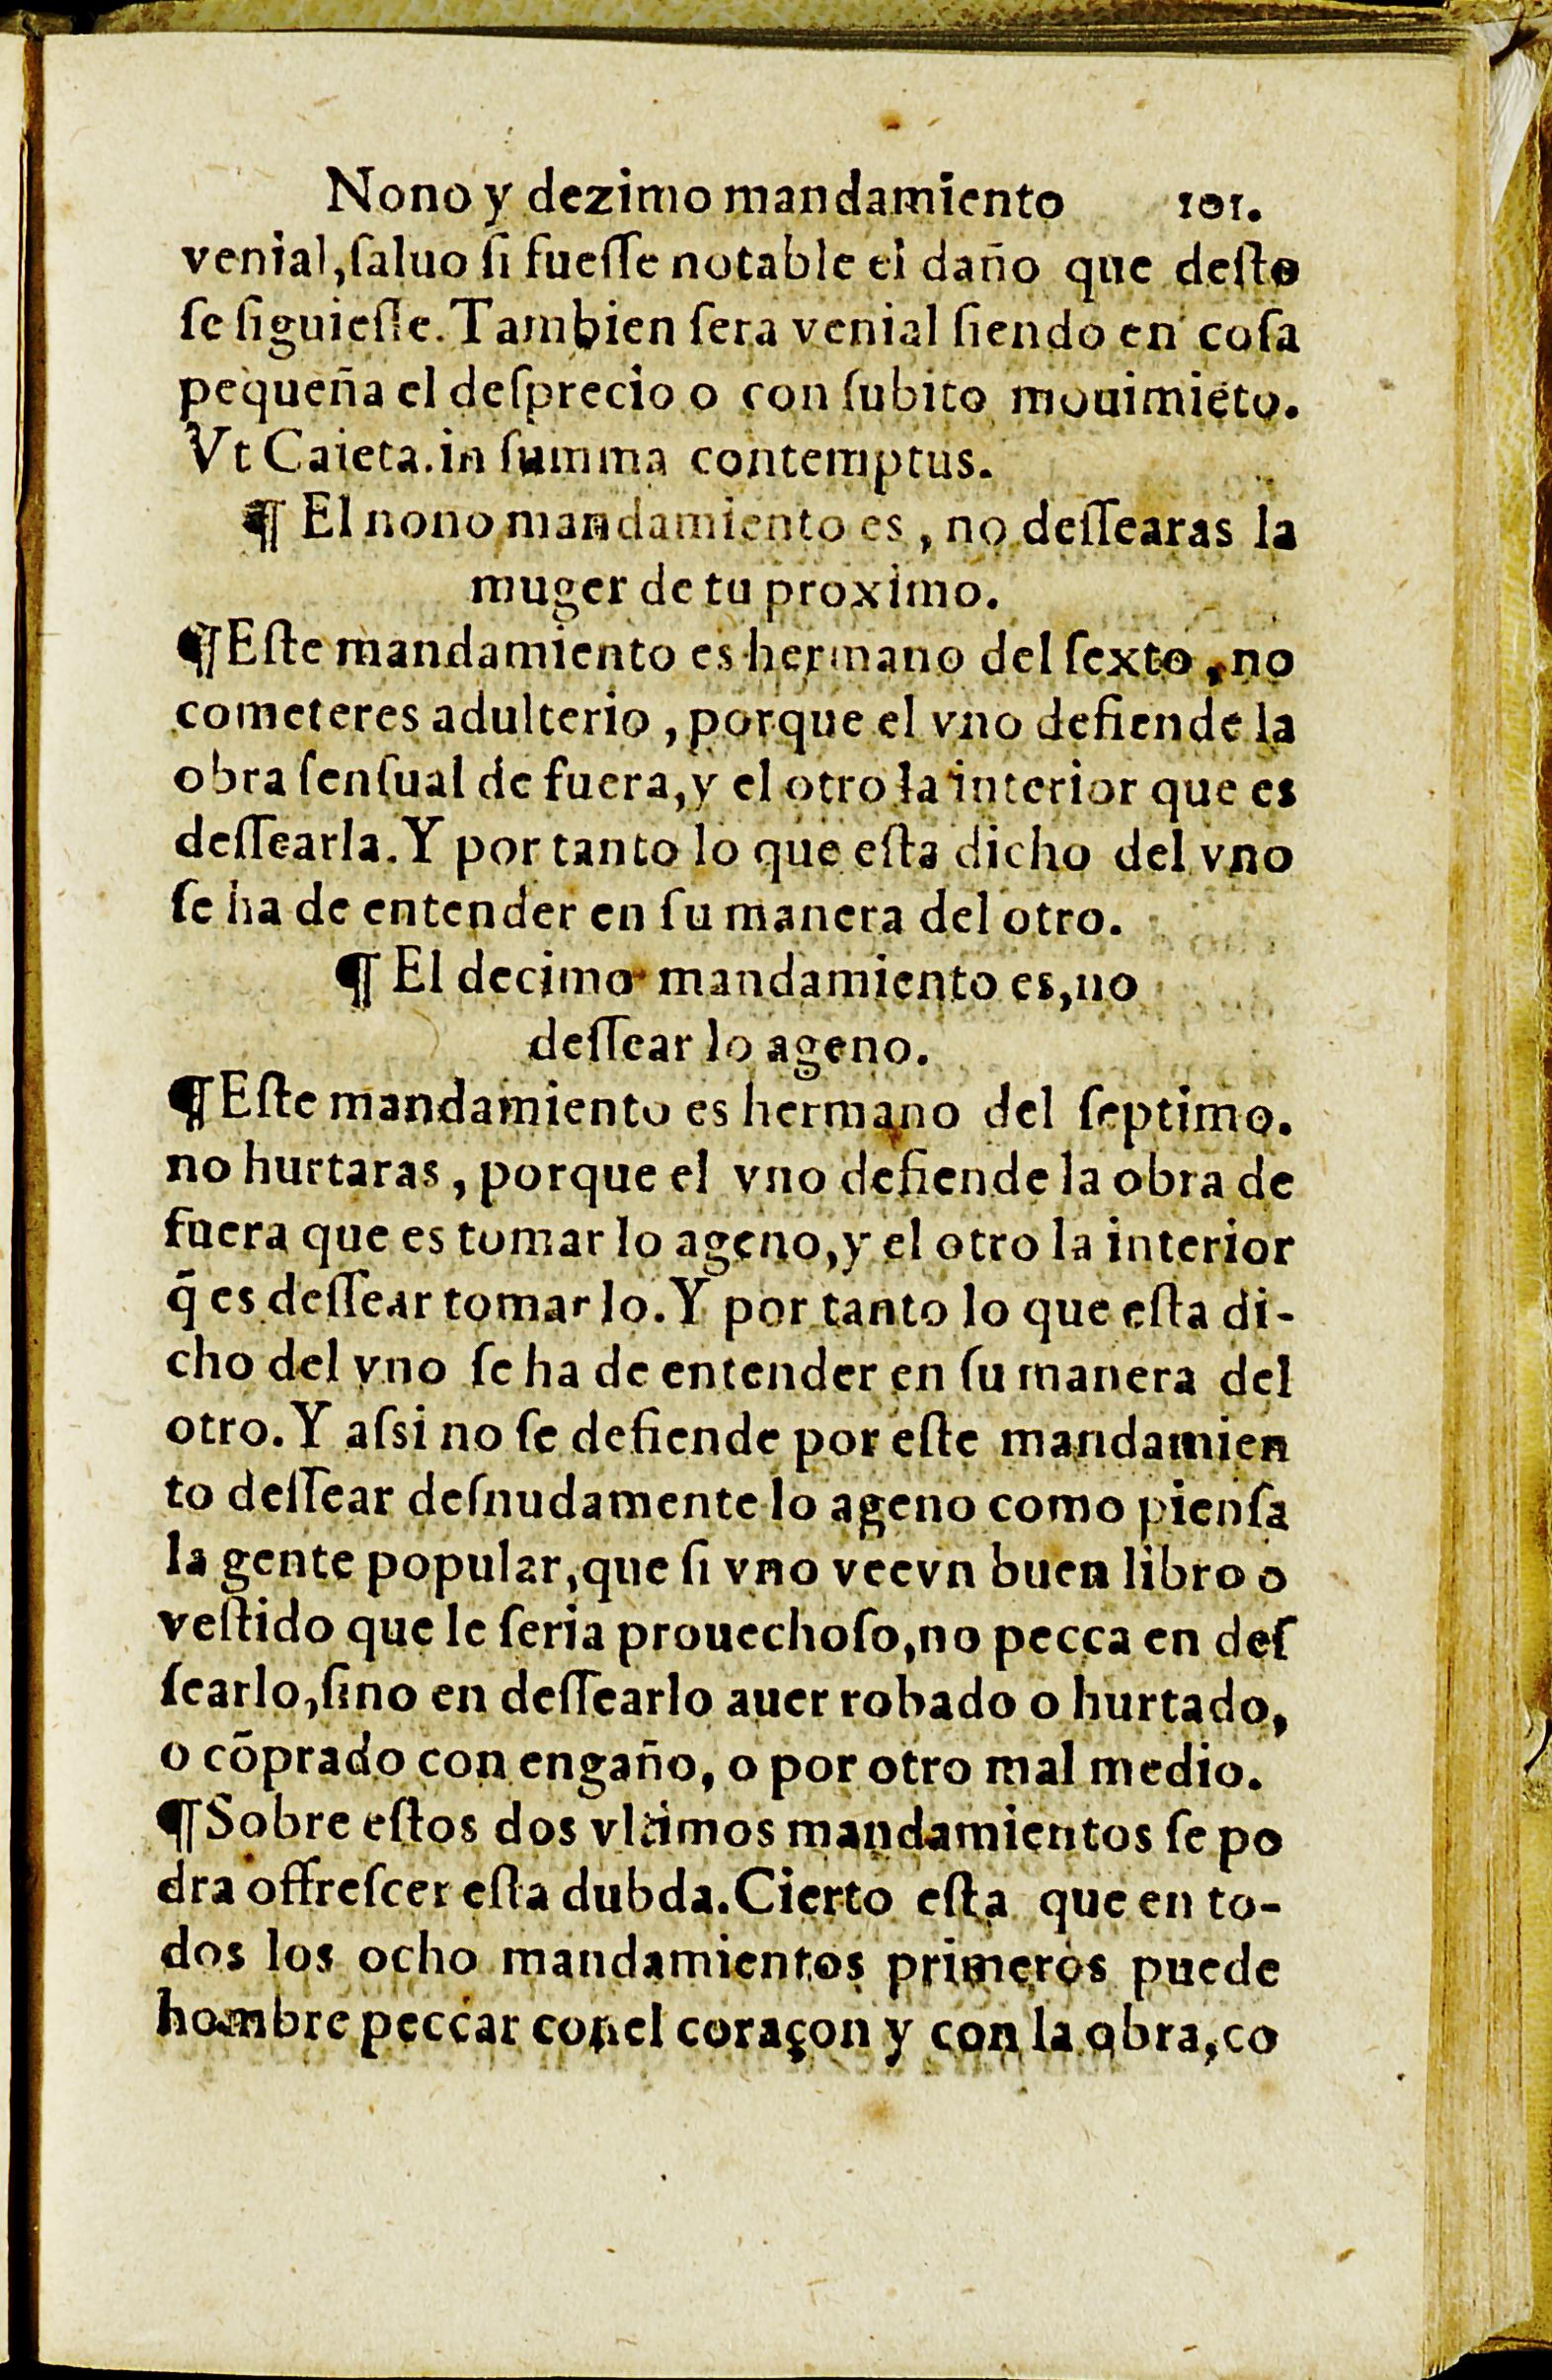 Nono y dezimo mandamiento 101.
venial, ſaluo ſi fueſſe notable el daño que deſto
ſe ſiguieſſe. Tambien ſera venial ſiendo en coſa
pequeña el deſprecio o con ſubito mouimiẽto.
Vt Caieta. in ſumma contemptus.
¶ El nono mandamiento es, no deſſearas la
muger de tu proximo.
¶ Eſte mandamiento es hermano del ſexto, no
cometeres adulterio, porque el vno defiende la
obra ſenſual de fuera, y el otro la interior que es
deſſearla. Y por tanto lo que eſta dicho del vno
ſe ha de entender en ſu manera del otro.
¶ El decimo mandamiento es, no
deſſear lo ageno.
¶ Eſte mandamiento es hermano del ſeptimo.
no hurtaras, porque el vno defiende la obra de
fuera que es tomar lo ageno, y el otro la interior
q̃ es deſſear tomar lo. Y por tanto lo que eſta di-
cho del vno ſe ha de entender en ſu manera del
otro. Y aſsi no ſe defiende por eſte mandamien
to deſſear deſnudamente lo ageno como pienſa
la gente popular, que ſi vno vee vn buen libro o
veſtido que le ſeria prouechoſo, no pecca en deſ
ſearlo, ſino en deſſearlo auer robado o hurtado,
o cõprado con engaño, o por otro mal medio.
¶ Sobre eſtos dos vltimos mandamientos ſe po
dra offreſcer eſta dubda. Cierto eſta que en to-
dos los ocho mandamientos primeros puede
hombre peccar con el coraçon y con la obra, co